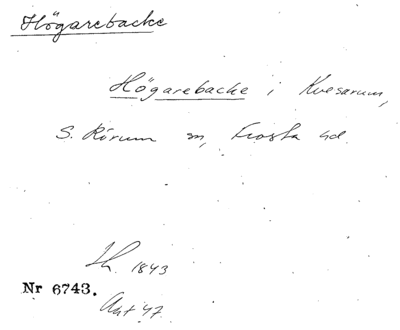 Högarebacke
Högarebacke i Kvesarum,
S. Rörum sn, Frosta hd.
Lh. 1843
Nr 6743.
Akt 47.